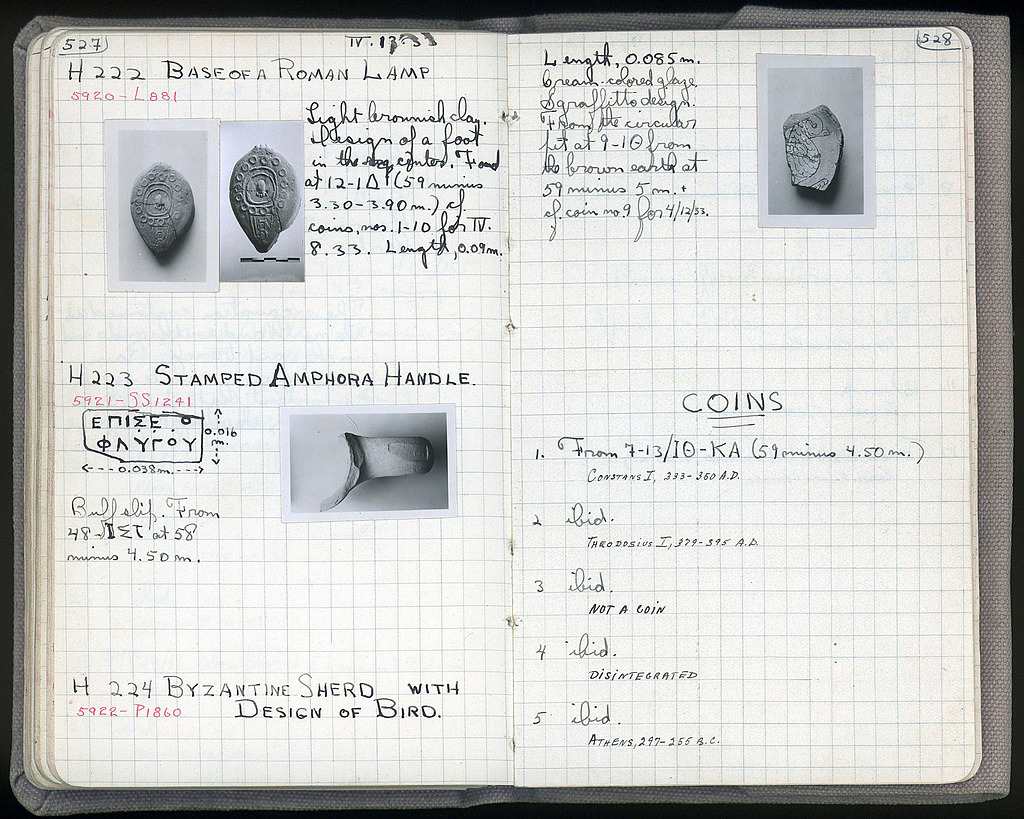 527
IV. 13. 33
H 222 BASE OF A ROMAN LAMP
5920-L881
Light brownish clay.
Design of a foot
in the center. Found
at 12-1Δ (59 minus
3.30-3.90 m.) cf.
coins, nos. 1-10 for IV.
8. 33. Length, 0.09 m.
H 223 STAMPED AMPHORA HANDLE.
5921-SS1241
ΕΠΙΣΕ Ο
ΦΛΥΓΟΥ
0.016
m.
0.038m.
Buff slip. From
48- at 58
minus 4.50 m.
H 224 BYZANTINE SHERD WITH
5922-P1860 DESIGN OF BIRD.
528
Length, 0.085 m.
Cream-colored glaze,
Sgraffitto design.
From the circular
pit at 9-1Θ from
the brown earth at
59 minus 5 m. +
cf. coin no. 9 for 4/12/33.
COINS
1. From 7-13/ΙΘ-ΚΑ (59 minus 4.50 m.)
CONSTANS I, 333-350 A.D.
2 ibid.
THEODOSIUS I, 379-395 A.D.
3 ibid.
NOT A COIN
4 ibid.
DISINTEGRATED
5 ibid.
ATHENS, 297-255 B.C.